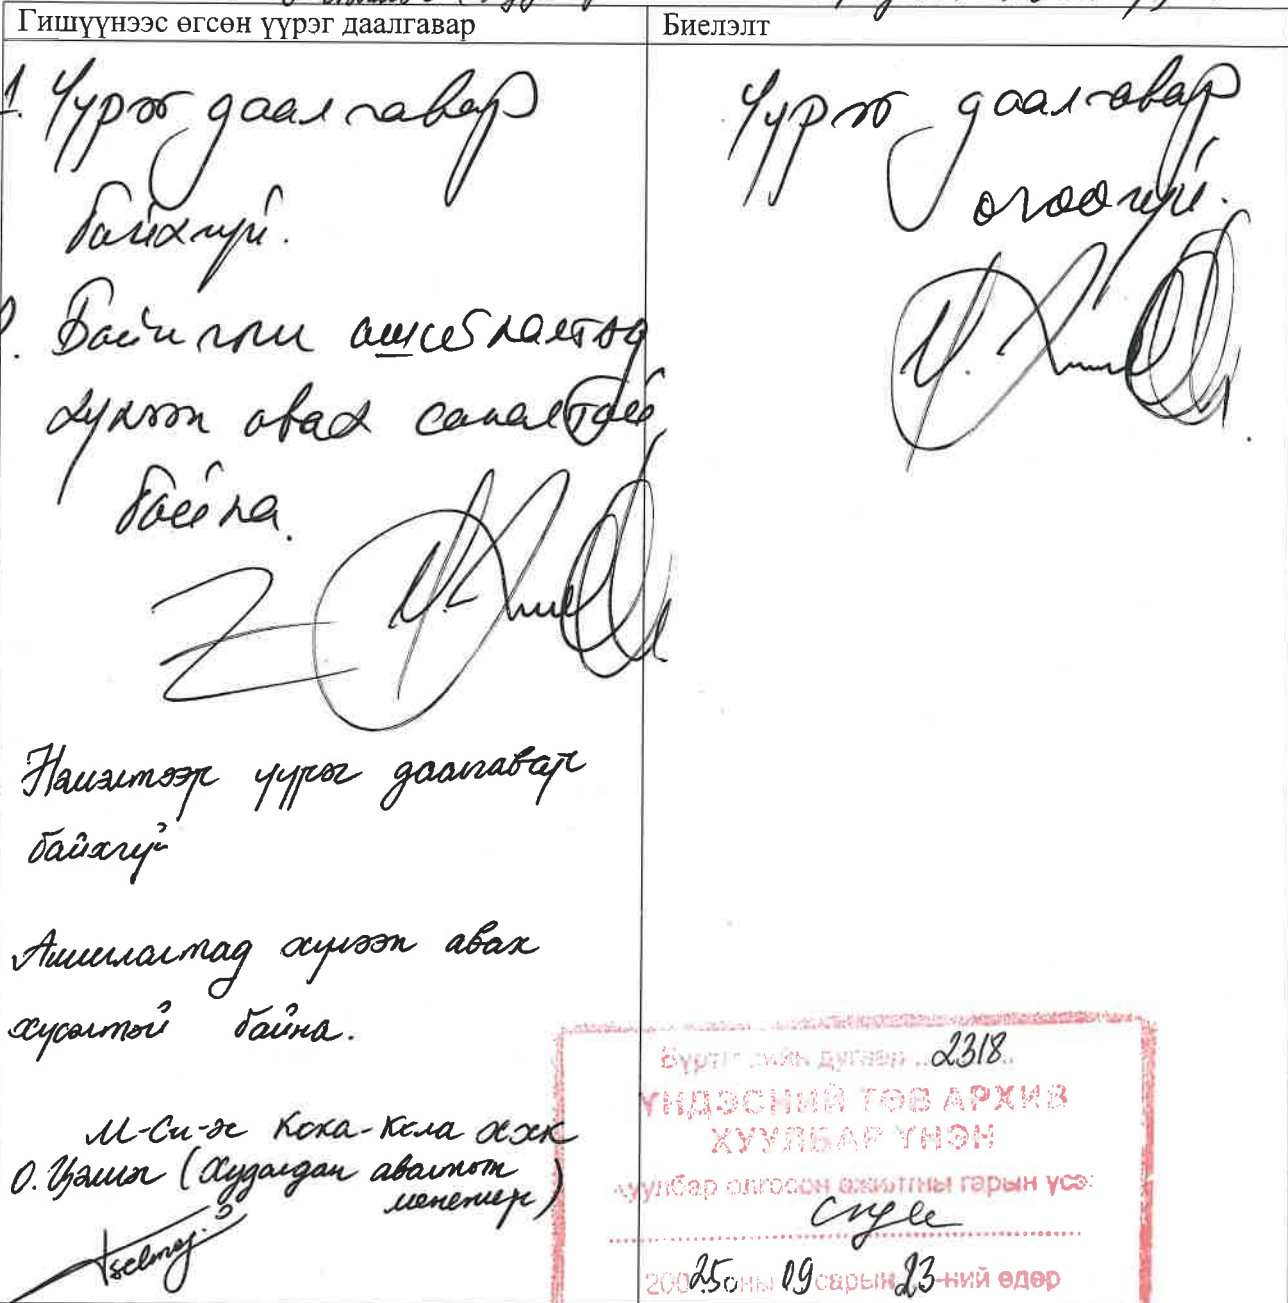 Гишүүнээс өгсөн үүрэг даалгавар
Биелэлт
1. Үүрэг даалгавар
байхгүй.
Барилгын ашиглалтад
хүлээн авах саналтай
байна.
Үүрэг даалгавар
өгөөгүй.
Нэмэлтээр үүрэг даалгавар
байхгүй
Ашиглалтад хүлээн авах
хүсэлтэй байна.
М-Си-Эс Кока-Кола ХХК
О. Цэлмэг (Худалдан авалтын
менежер)
Tselmeg. O
Бүртгэлийн дугаар .. 2318..
ҮНДЭСНИЙ ТӨВ АРХИВ
ХУУЛБАР ҮНЭН
хуулбар олгосон ажилтны гарын үсэг
200 25 оны 09 сарын 23-ний өдөр